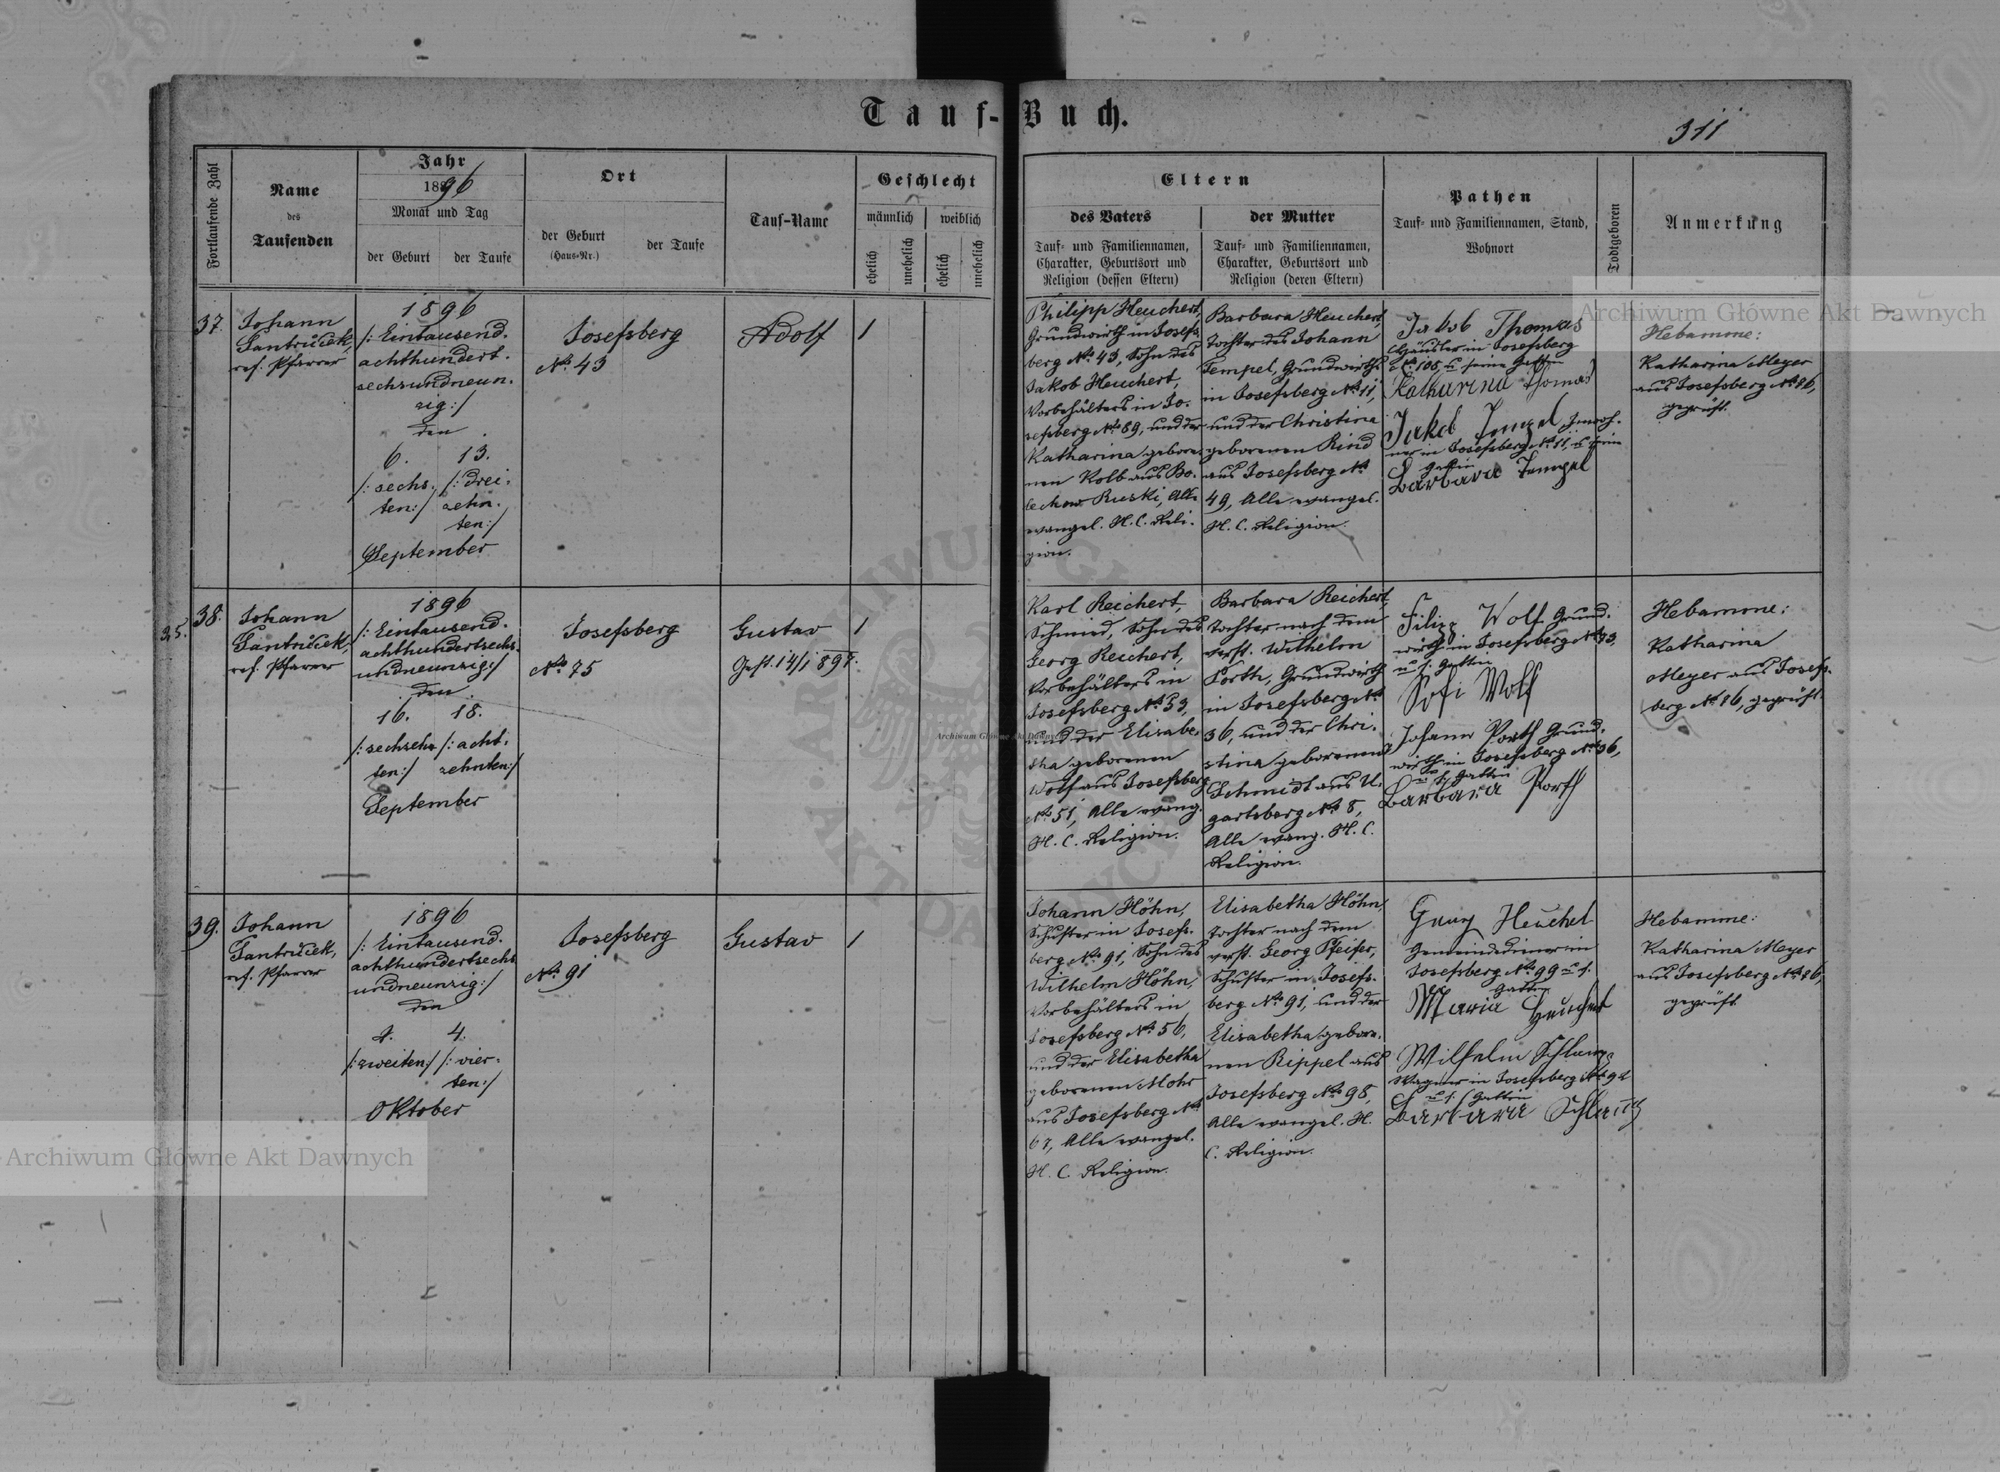 Tauf-Buch.
311
Fortlaufende Zahl
Name
des
Taufenden
Jahr
1896
Monat und Tag
der Geburt
der Taufe
Ort
der Geburt
(Haus-Nr.)
der Taufe
Tauf-Name
Geschlecht
männlich
weiblich
ehelich
unehelich
ehelich
unehelich
Eltern
des Vaters
Tauf- und Familiennamen,
Charakter, Geburtsort und
Religion (dessen Eltern)
der Mutter
Tauf- und Familiennamen,
Charakter, Geburtsort und
Religion (deren Eltern)
Pathen
Tauf- und Familiennamen, Stand,
Wohnort
Todtgeboren
Anmerkung
37.
Johann
Jantrůček,
ref. Pfarrer
1896
/: Eintausend.
achthundert.
sechsundneun.
zig:/
den
6. 13.
/: sechs. /: drei.
ten:/ zehn.
ten:/
September
Josefsberg
No. 43
Adolf
1
Philipp Heuchert,
Grundwirth in Josefs
berg No. 43, Sohn des
Jakob Heuchert,
Vorbehälters in Jo.
sefsberg No. 89, und der
Katharina gebore.
nen Kolb aus Bo.
lechow Ruski, Alle
evangel. H. C. Reli.
gion.
Barbara Heuchert,
Tochter des Johann
Tempel, Grundwirths
in Josefsberg No. 11,
und der Christina
geborenen Rind
aus Josefsberg No.
49, Alle evangel.
H. C. Religion.
Jakob Thomas
Häusler in Josefsberg
No. 108, u. seine Gattin
Katharina Thomas
Jakob Tempel Inwoh.
ner in Josefsberg No. 11, u. sein
Gattin
Barbara Tempel
Hebamme:
Katharina Meyer
aus Josefsberg No. 86,
geprüft.
25.
38.
Johann
Jantrůček,
ref. Pfarrer
1896
/: Eintausend.
achthundertsechs.
undneunzig:/
den
16. 18.
/: sechzehn /: acht.
ten:/ zehnten:/
September
Josefsberg
No. 75
Gustav
Gest. 14/1 897.
1
Karl Reichert,
Schmied, Sohn des
Georg Reichert,
Vorbehälters in
Josefsberg No. 53,
und der Elisabe.
tha geborenen
Wolf aus Josefsberg
No. 51, Alle evang.
H. C. Religion.
Barbara Reichert,
Tochter nach dem
verst. Wilhelm
Porth, Grundwirth
in Josefsberg No.
36, und der Chri.
stina geborenen
Schmidt aus U.
gartsberg No. 8,
Alle evang. H. C.
Religion.
Filipp Wolf Grund.
wirth in Josefsberg No. 33,
u. s. Gattin
Sofi Wolf
Johann Porth Grund.
wirth in Josefsberg No. 36,
u. s. Gattin
Barbara Porth
Hebamme:
Katharina
Meyer aus Josefs.
berg No. 86, geprüft.
39.
Johann
Jantrůček,
ref. Pfarrer
1896
/: Eintausend.
achthundertsechs
undneunzig:/
den
2. 4.
/: zweiten:/ /: vier.
ten:/
Oktober
Josefsberg
No. 91
Gustav
1
Johann Höhn,
Schuster in Josefs.
berg No. 91, Sohn des
Wilhelm Höhn,
Vorbehälters in
Josefsberg No. 56,
und der Elisabetha
geborenen Mohr
aus Josefsberg No.
67, Alle evangel.
H. C. Religion.
Elisabetha Höhn,
Tochter nach dem
verst. Georg Pfeifer,
Schuster in Josefs.
berg No. 91, und der
Elisabetha gebore.
nen Rippel aus
Josefsberg No. 98,
Alle evangel. H.
C. Religion.
Georg Heuchert
Gemeindediener in
Josefsberg No. 99 u. s.
Gattin
Maria Heuchert
Wilhelm
Wagner in Josefsberg No. 92
u. s. Gattin
Barbara
Hebamme:
Katharina Meyer
aus Josefsberg No. 86,
geprüft
Archiwum Główne Akt Dawnych
Archiwum Główne Akt Dawnych
Archiwum Główne Akt Dawnych